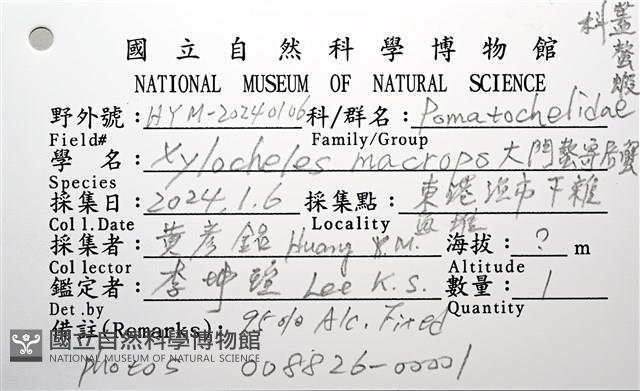 科 蓋螯蝦
國立自然科學博物館
NATIONAL MUSEUM OF NATURAL SCIENCE
野外號: HYM-20240106 科/群名: Pomatochelidae
Field# Family/Group
學 名: Xylocheles macrops 大門螯寄居蟹
Species
採集日: 2024.1.6 採集點: 東港漁市下雜
Coll.Date Locality 魚堆
採集者: 黃彥銘 Huang Y.M. 海拔: ? m
Collector Altitude
鑑定者: 李坤瑄 Lee K.S. 數量: 1
Det.by Quantity
備註(Remarks): 95% Alc. Fixed
國立自然科學博物館
NATIONAL MUSEUM OF NATURAL SCIENCE
photos 008826-00001